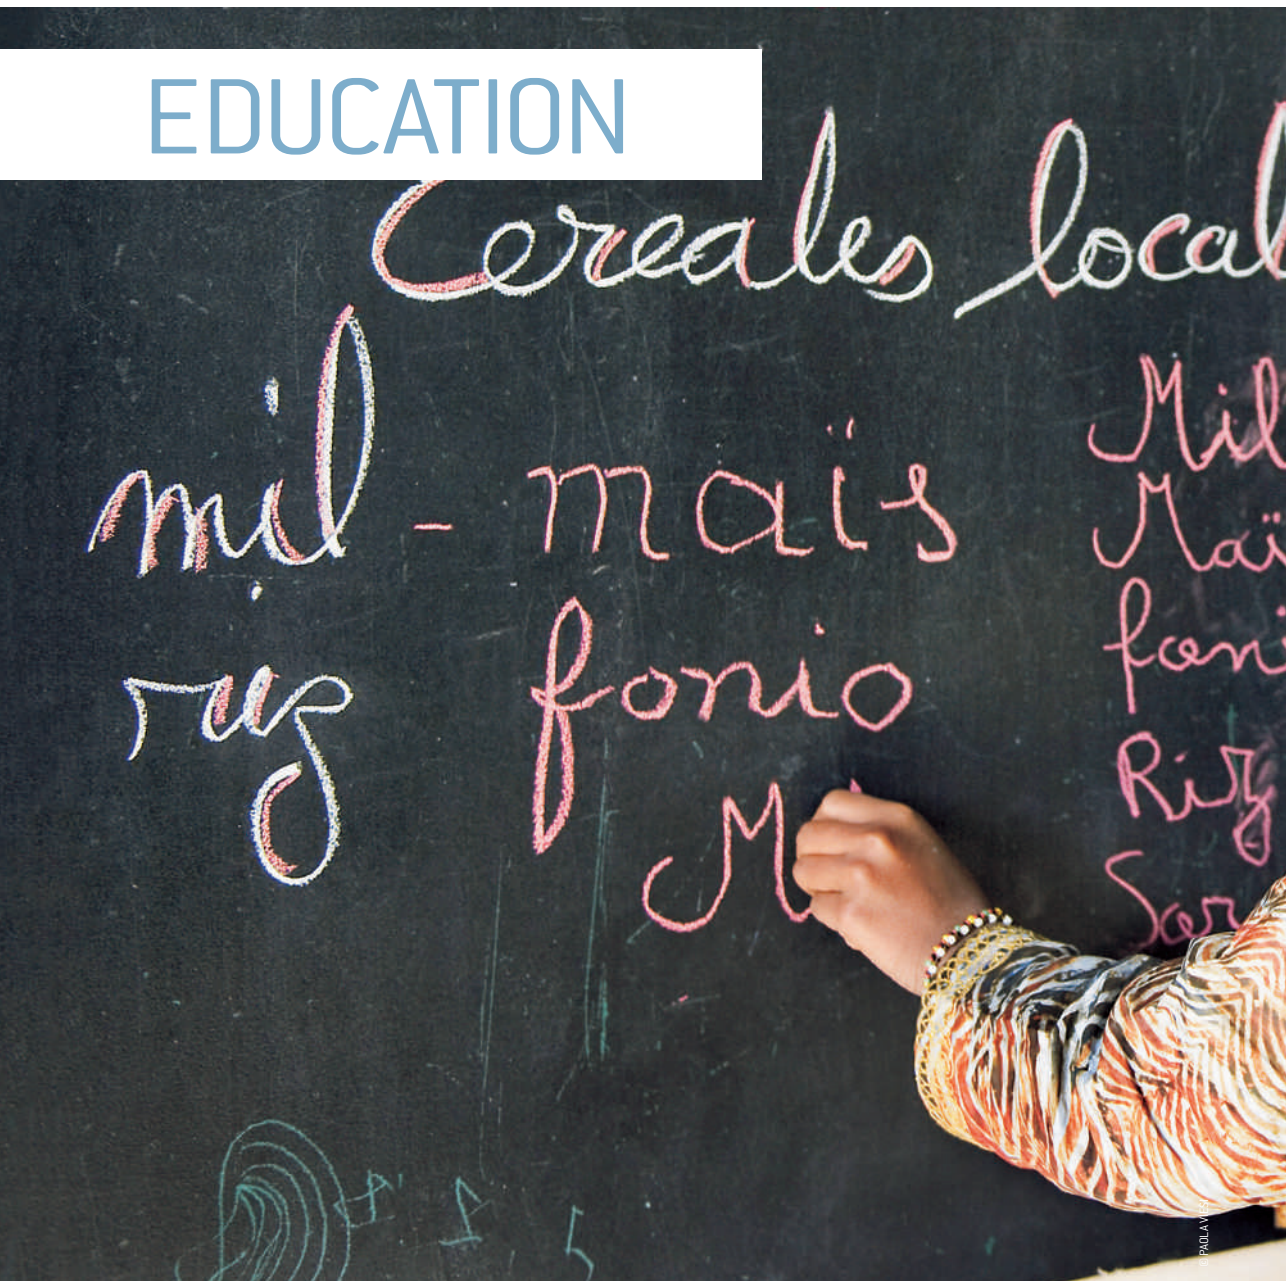 EDUCATION
Cereales local
mil - maïs
riz fonio
M
Mil
Maï
foni
Riz
Sor
© PAOLA VIES